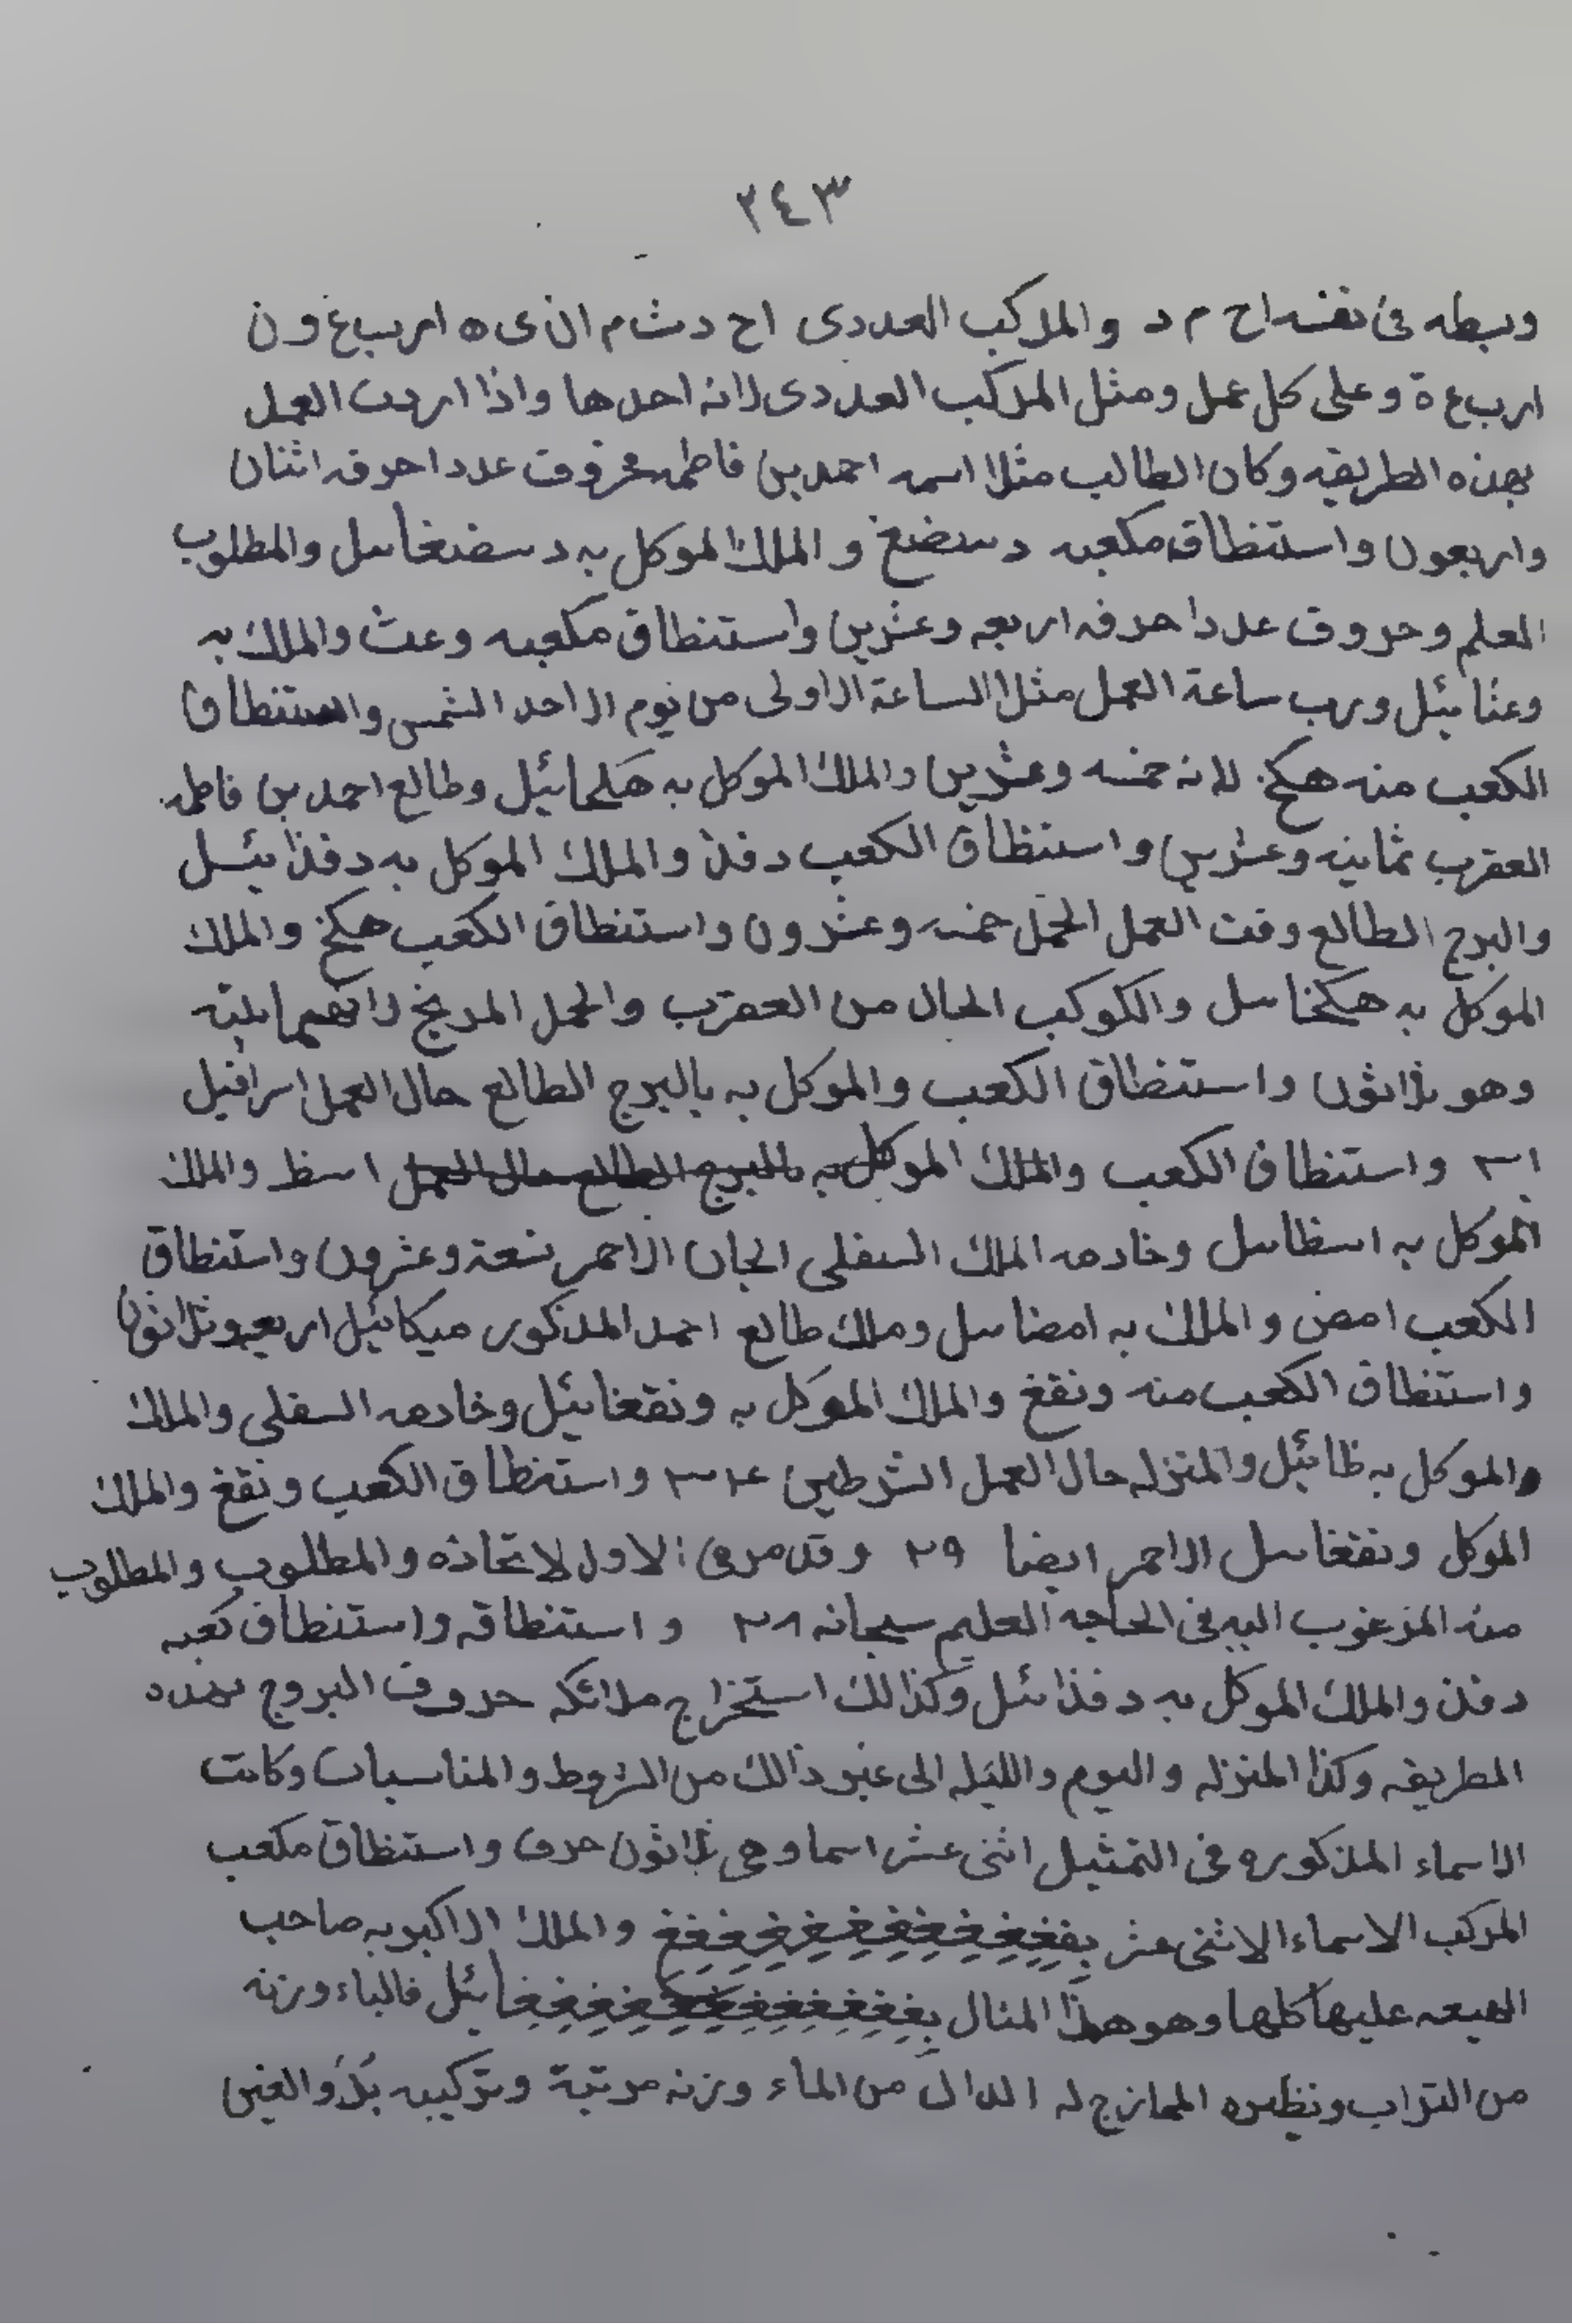 ٢٤٣
وبسطه فى نفسه اح م د والمركب العددى اح د ث م ان ى ه ارب ع ون
ارب ع ة وعلى كل عمل ومثل المركب العددى لانه احدها واذا اردت العمل
بهذه الطريقه وكان الطالب مثلا اسمه احمد بن فاطمه فحروف عدد احرفه اثنان
واربعون واستنطاق مكعبه د سضغ والملك الموكل به د سضغاسل والمطلوب
المعلم وحروف عدد احرفه اربعه وعشرين واستنطاق مكعبه وعث والملك به
وعثائيل ورب ساعة العمل مثلا الساعة الاولى من يوم الاحد الشمس واستنطاق
الكعب منه هكخ لانه خمسه وعشرين والملك الموكل به هكخائيل وطالع احمد بن فاطمه
العقرب ثمانيه وعشرين واستنطاق الكعب دفذ والملك الموكل به دفذائيل
والبرج الطالع وقت العمل الحمل خمسه وعشرون واستنطاق الكعب هكخ والملك
الموكل به هكخاسل والكوكب الحال من العقرب والحمل المريخ لانهما بيته
وهو ثلاثون واستنطاق الكعب والموكل به بالبرج الطالع حال العمل اسرافيل
٣١ واستنطاق الكعب والملك الموكل به بالبرج الطالع حال العمل اسظ والملك
الموكل به اسظاسل وخادمه الملك السفلى الجان الاحمر تسعة وعشرون واستنطاق
الكعب امض والملك به امضاسل وملك طالع احمد المذكور ميكائيل اربعه وثلاثون
واستنطاق الكعب منه ونقغ والملك الموكل به ونقغائيل وخادمه السفلى والملك
والموكل به ظائيل والمنزله حال العمل الشرطين ٣٤ واستنطاق الكعب ونقغ والملك
الموكل ونقغاسل الاحمر ايضا ٢٩ وقد مر فى الاول لاتحاذه والمطلوب والمطلوب
منه المرغوب اليه فى الحاجه العليم سبحانه ٢٨ واستنطاقه واستنطاق كعبه
دفذ والملك الموكل به دفذائيل وكذالك استخراج ملائكه حروف البروج بهده
الطريقه وكذا المنزله واليوم والليله الى غير ذالك من الشروط والمناسبات وكانت
الاسماء المذكوره فى التمثيل اثنى عشر اسما وهى ثلاثون حرف واستنطاق مكعب
المركب الاسماء الاثنى عشر والملك الاكبر به صاحب
الهيعه عليها كلها وهو هذا المثال فالباء وزنه
من التراب ونظيره الممازج له الدال من الماء وزنه مرتبة وتركيبه بد والغين